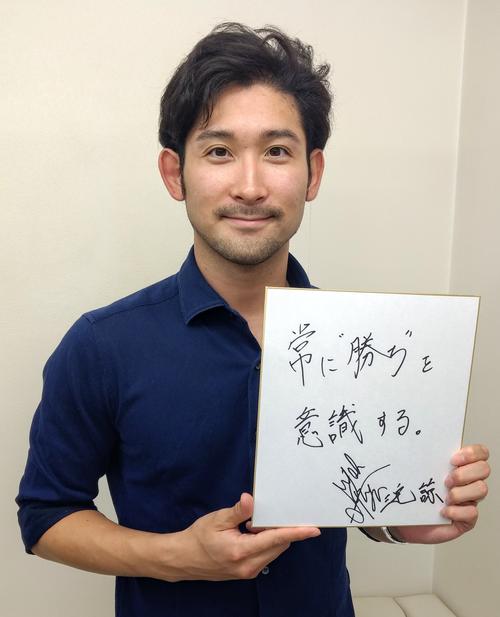 常に"勝つ"を
意識する。